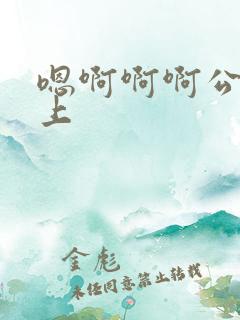 嗯啊啊啊公
上
金彪
未经同意禁止转载